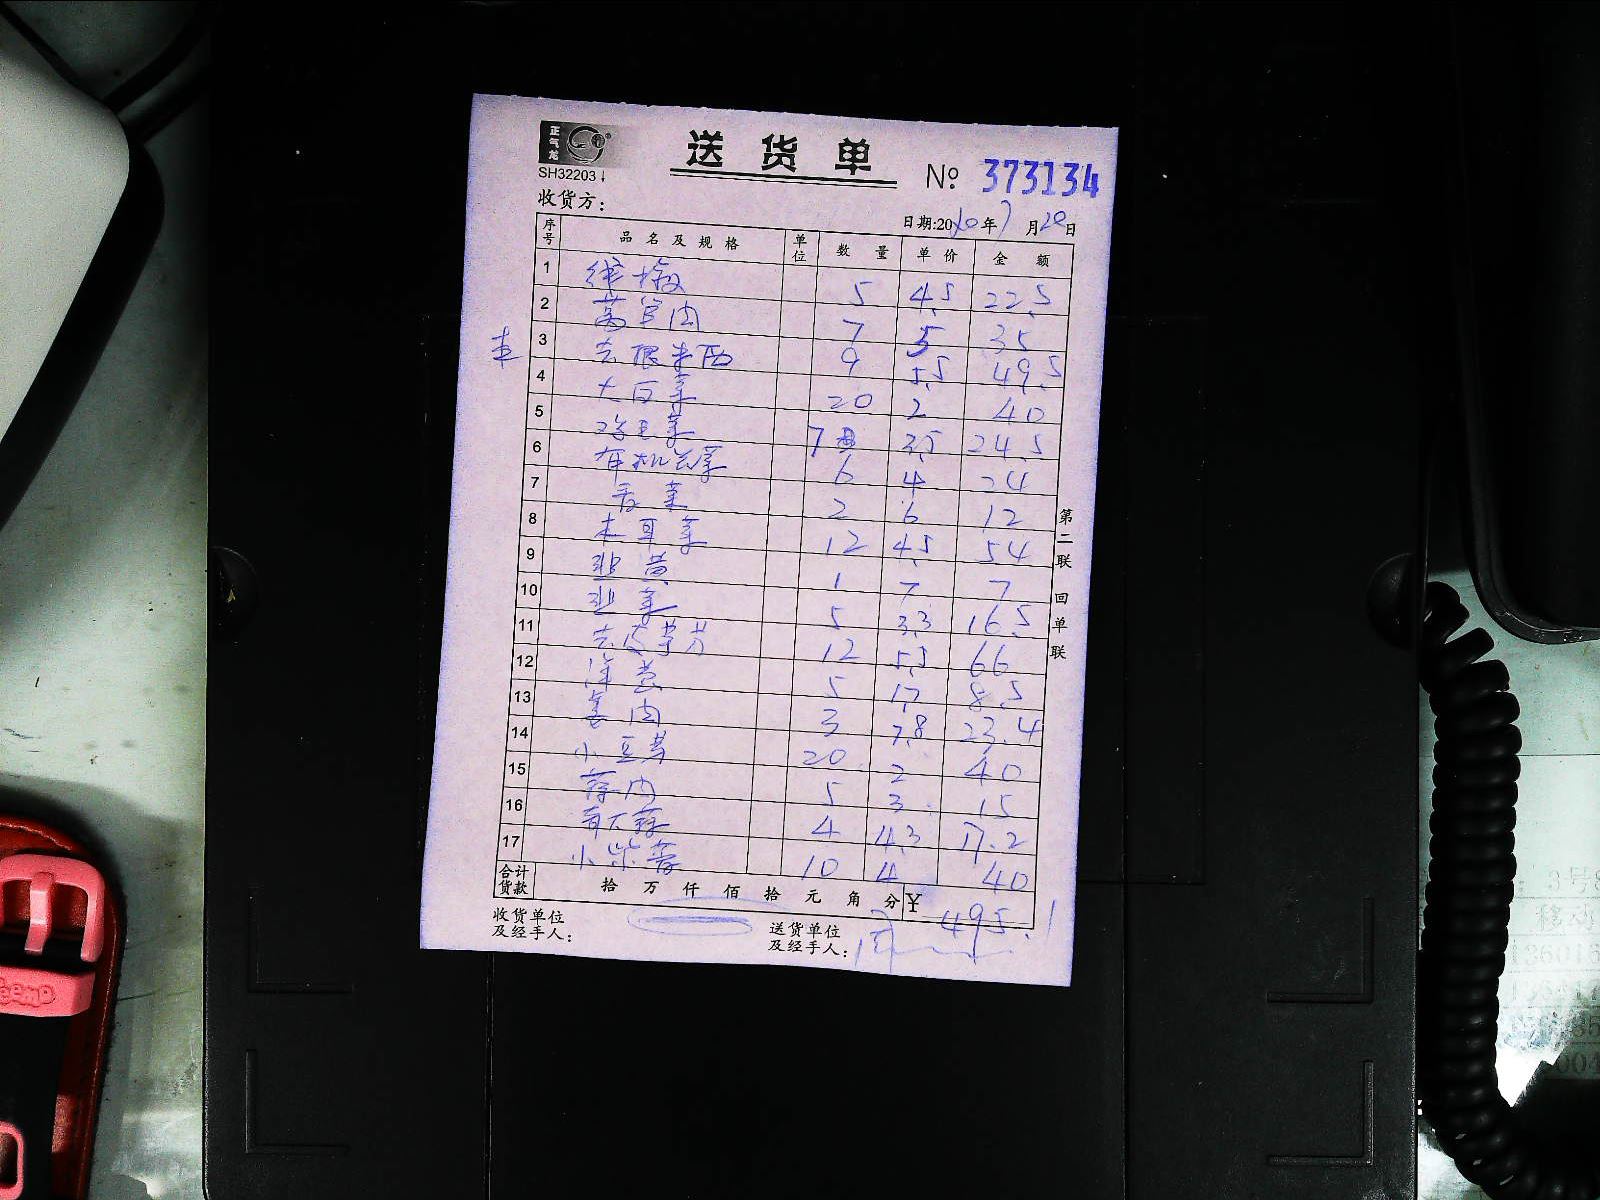 正气龙
SH32203↓
送货单
№ 373134
收货方:
日期:2010年7月20日
序号 品名及规格 单位 数量 单价 金额
1 5 4.5 22.5
2 莴笋肉 7 5 35
3 去根米西 9 5.5 49.5
4 大白菜 20 2 40
5 鸡毛菜 7 3.5 24.5
6 有机花菜 6 4 24
7 香菜 2 6 12
8 木耳菜 12 4.5 54
9 韭黄 1 7 7
10 韭菜 5 3.3 16.5
11 去皮芋艿 12 5.5 66
12 洋葱 5 1.7 8.5
13 姜肉 3 7.8 23.4
14 小豆芽 20 2 40
15 蒜肉 5 3 15
16 青大蒜 4 4.3 17.2
17 小米葱 10 4 40
合计货款 拾 万 仟 佰 拾 元 角 分 ¥ 495.1
收货单位及经手人:
送货单位及经手人:
第二联 回单联
3号8
移动